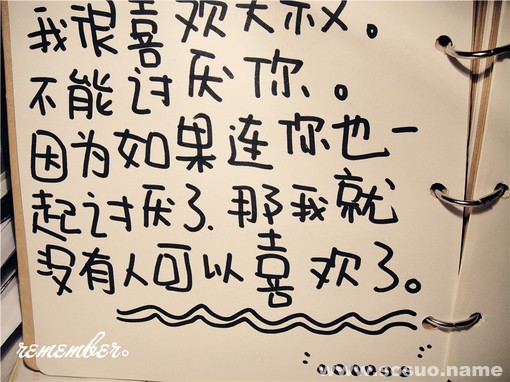 我很喜欢大叔。
不能讨厌你。
因为如果连你也一
起讨厌了.那我就
没有人可以喜欢了。
remember。
www.scsuo.name